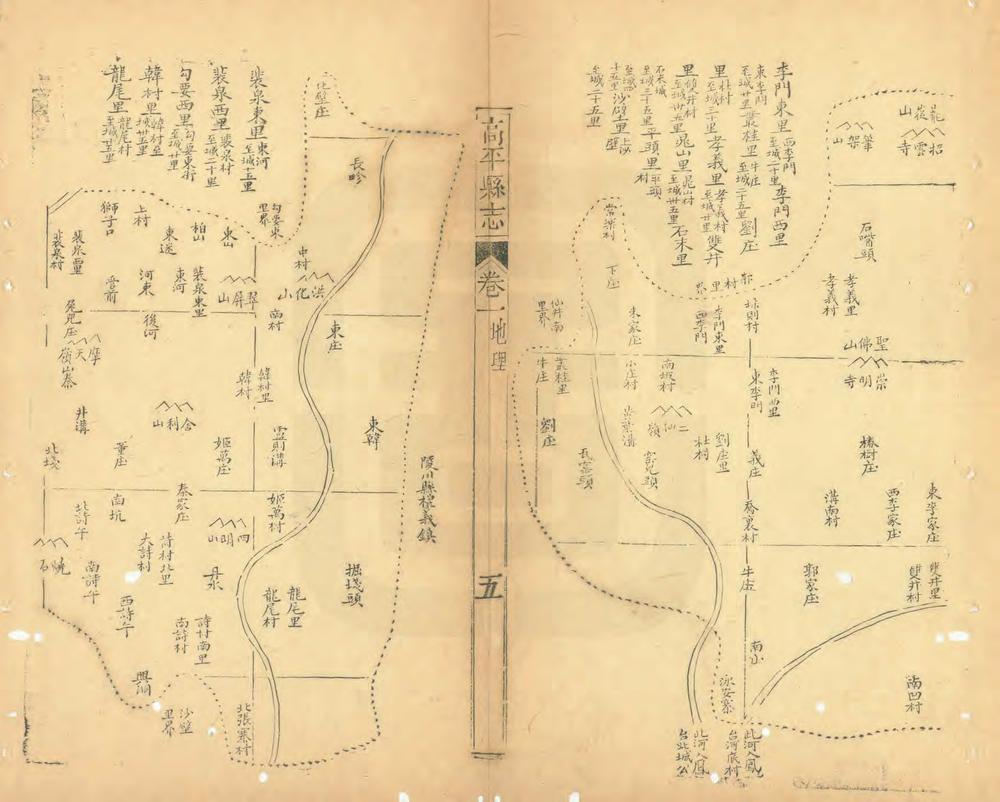 高平縣志
卷一
地理
五
李門東里 西李門
至城二十里 李門西里
東李門
至城廿里 叢桂里 牛庄
至城二十五里 劉庄
里 杜村
至城三十里 孝義里 孝義村
至城廿里 雙井
里 雙井村
至城廿五里
石末里
石末城
至城三十五里 平頭里 平頭村
至城二十五里
龍尾里 龍尾村
韓村里 韓村
勾要西里 勾要東街
至城廿里
裴泉西里 裴泉村
至城二十里
裴泉東里 東河
至城十五里
招雲寺
筆架山
石嘴頭
孝義里
孝義村
聖佛山
崇明寺
椿樹庄
東李家庄
西李家庄
溝南村
雙井里
雙井村
郭家庄
南凹村
郭村里界
李門東里
西李門
李門西里
東李門
劉庄里
杜村
義庄
喬裏村
牛庄
南山
永安寨
此河入鳳
台河底村
此河入鳳
台北城公
常樂村
下庄
朱家庄
小庄村
南坂村
二仙嶺
仙井南
里界
叢桂里
牛庄
劉庄
瓦窑頭
化壁庄
長畛
獅子口
上村
東迷
柏山
東山
勾要東
里界
中村
洪化山
裴泉村
裴泉里
河東
東河
裴泉東里
翠屏山
南村
東庄
後河
摩天嶺
山寨
韓村里
韓村
井溝
舍利山
東韓
北㘰
董庄
姬萬庄
靈則溝
陵川縣楊義鎮
秦家庄
姬萬村
南坑
北詩午
四明山
詩村北里
大詩村
南詩午
丹水
掘㘰頭
西詩午
龍尾里
龍尾村
詩村南里
南詩村
沙壁
里界
北張寨村